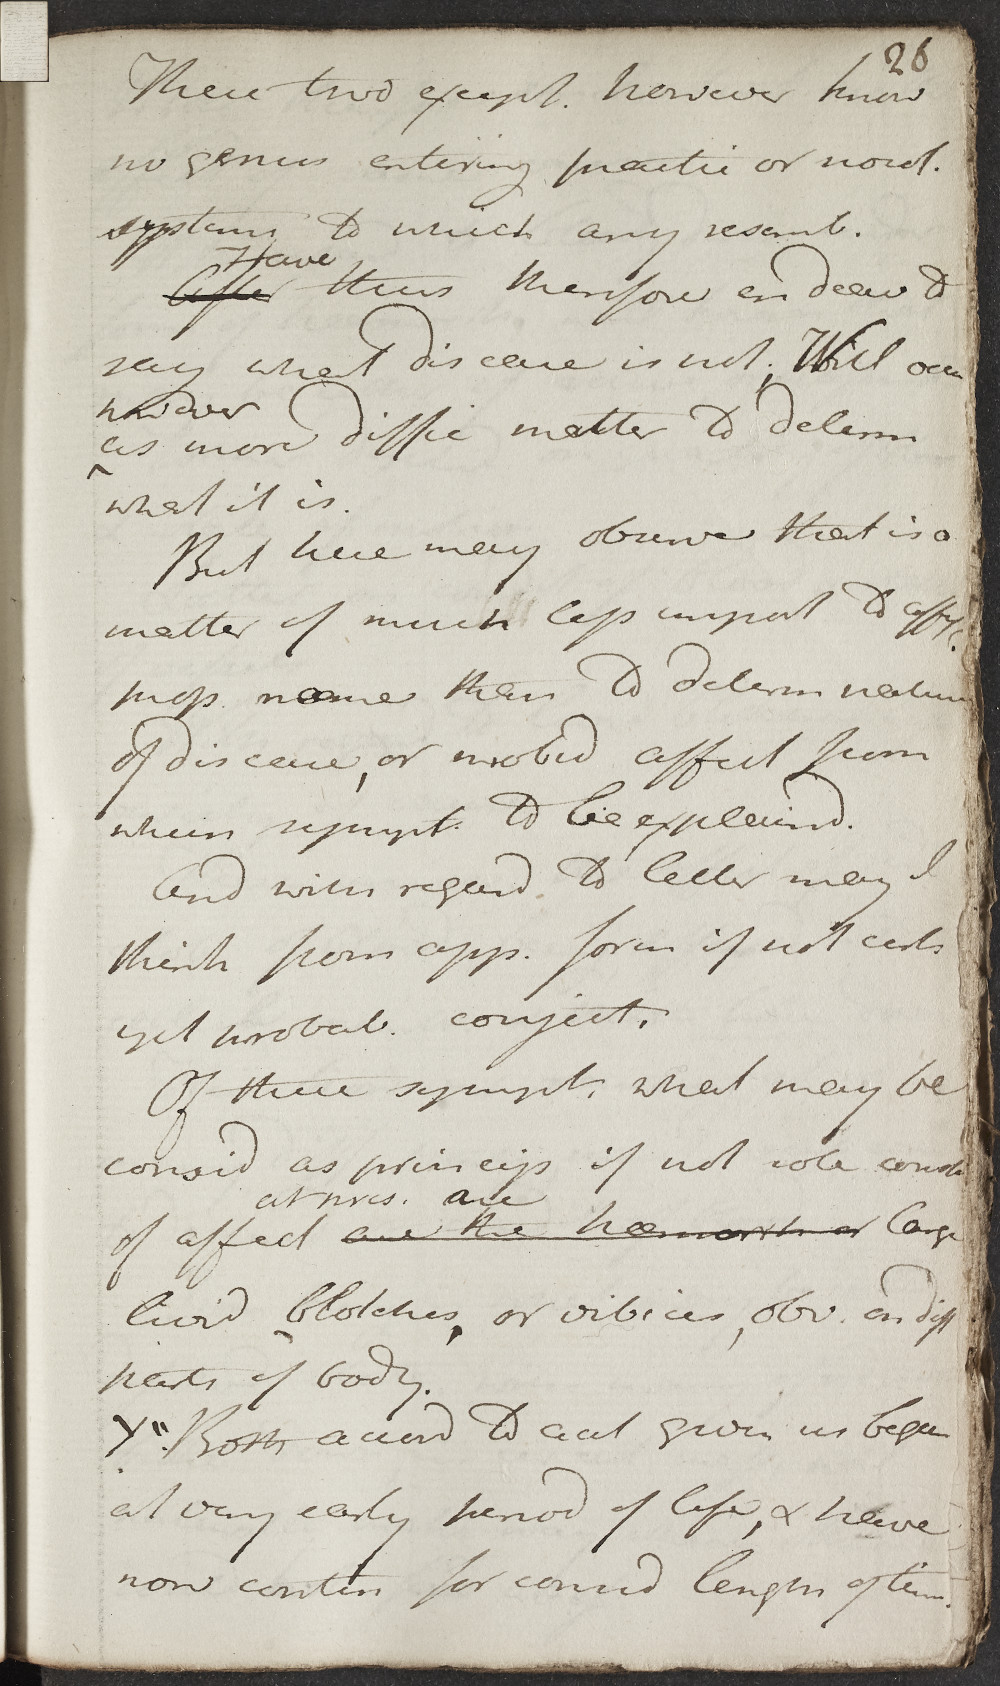 26
These two except. however know
no genus entering practic or nosol.
systems to which any resemb.
Have
After thus therefore endeav to
say what disease is not; Will
however
as more diffic matter to determ
what it is.
But here may observe that is a
matter of much less import to affix
prop. name than to determ nature
of disease, or morbid affect from
when sympt. to be explaind.
And with regard to latter may I
think from app. form if not cert
yet probab. conject.
Of these sympt. what may be
consid as princip if not sole const
at pres. are
of affect are the hæmorrh or large
livid blotches, or vibices, obv. on diff
parts of body.
Y". Both accord to acct given us began
at very early period of life, & have
now contin for consid length of time.